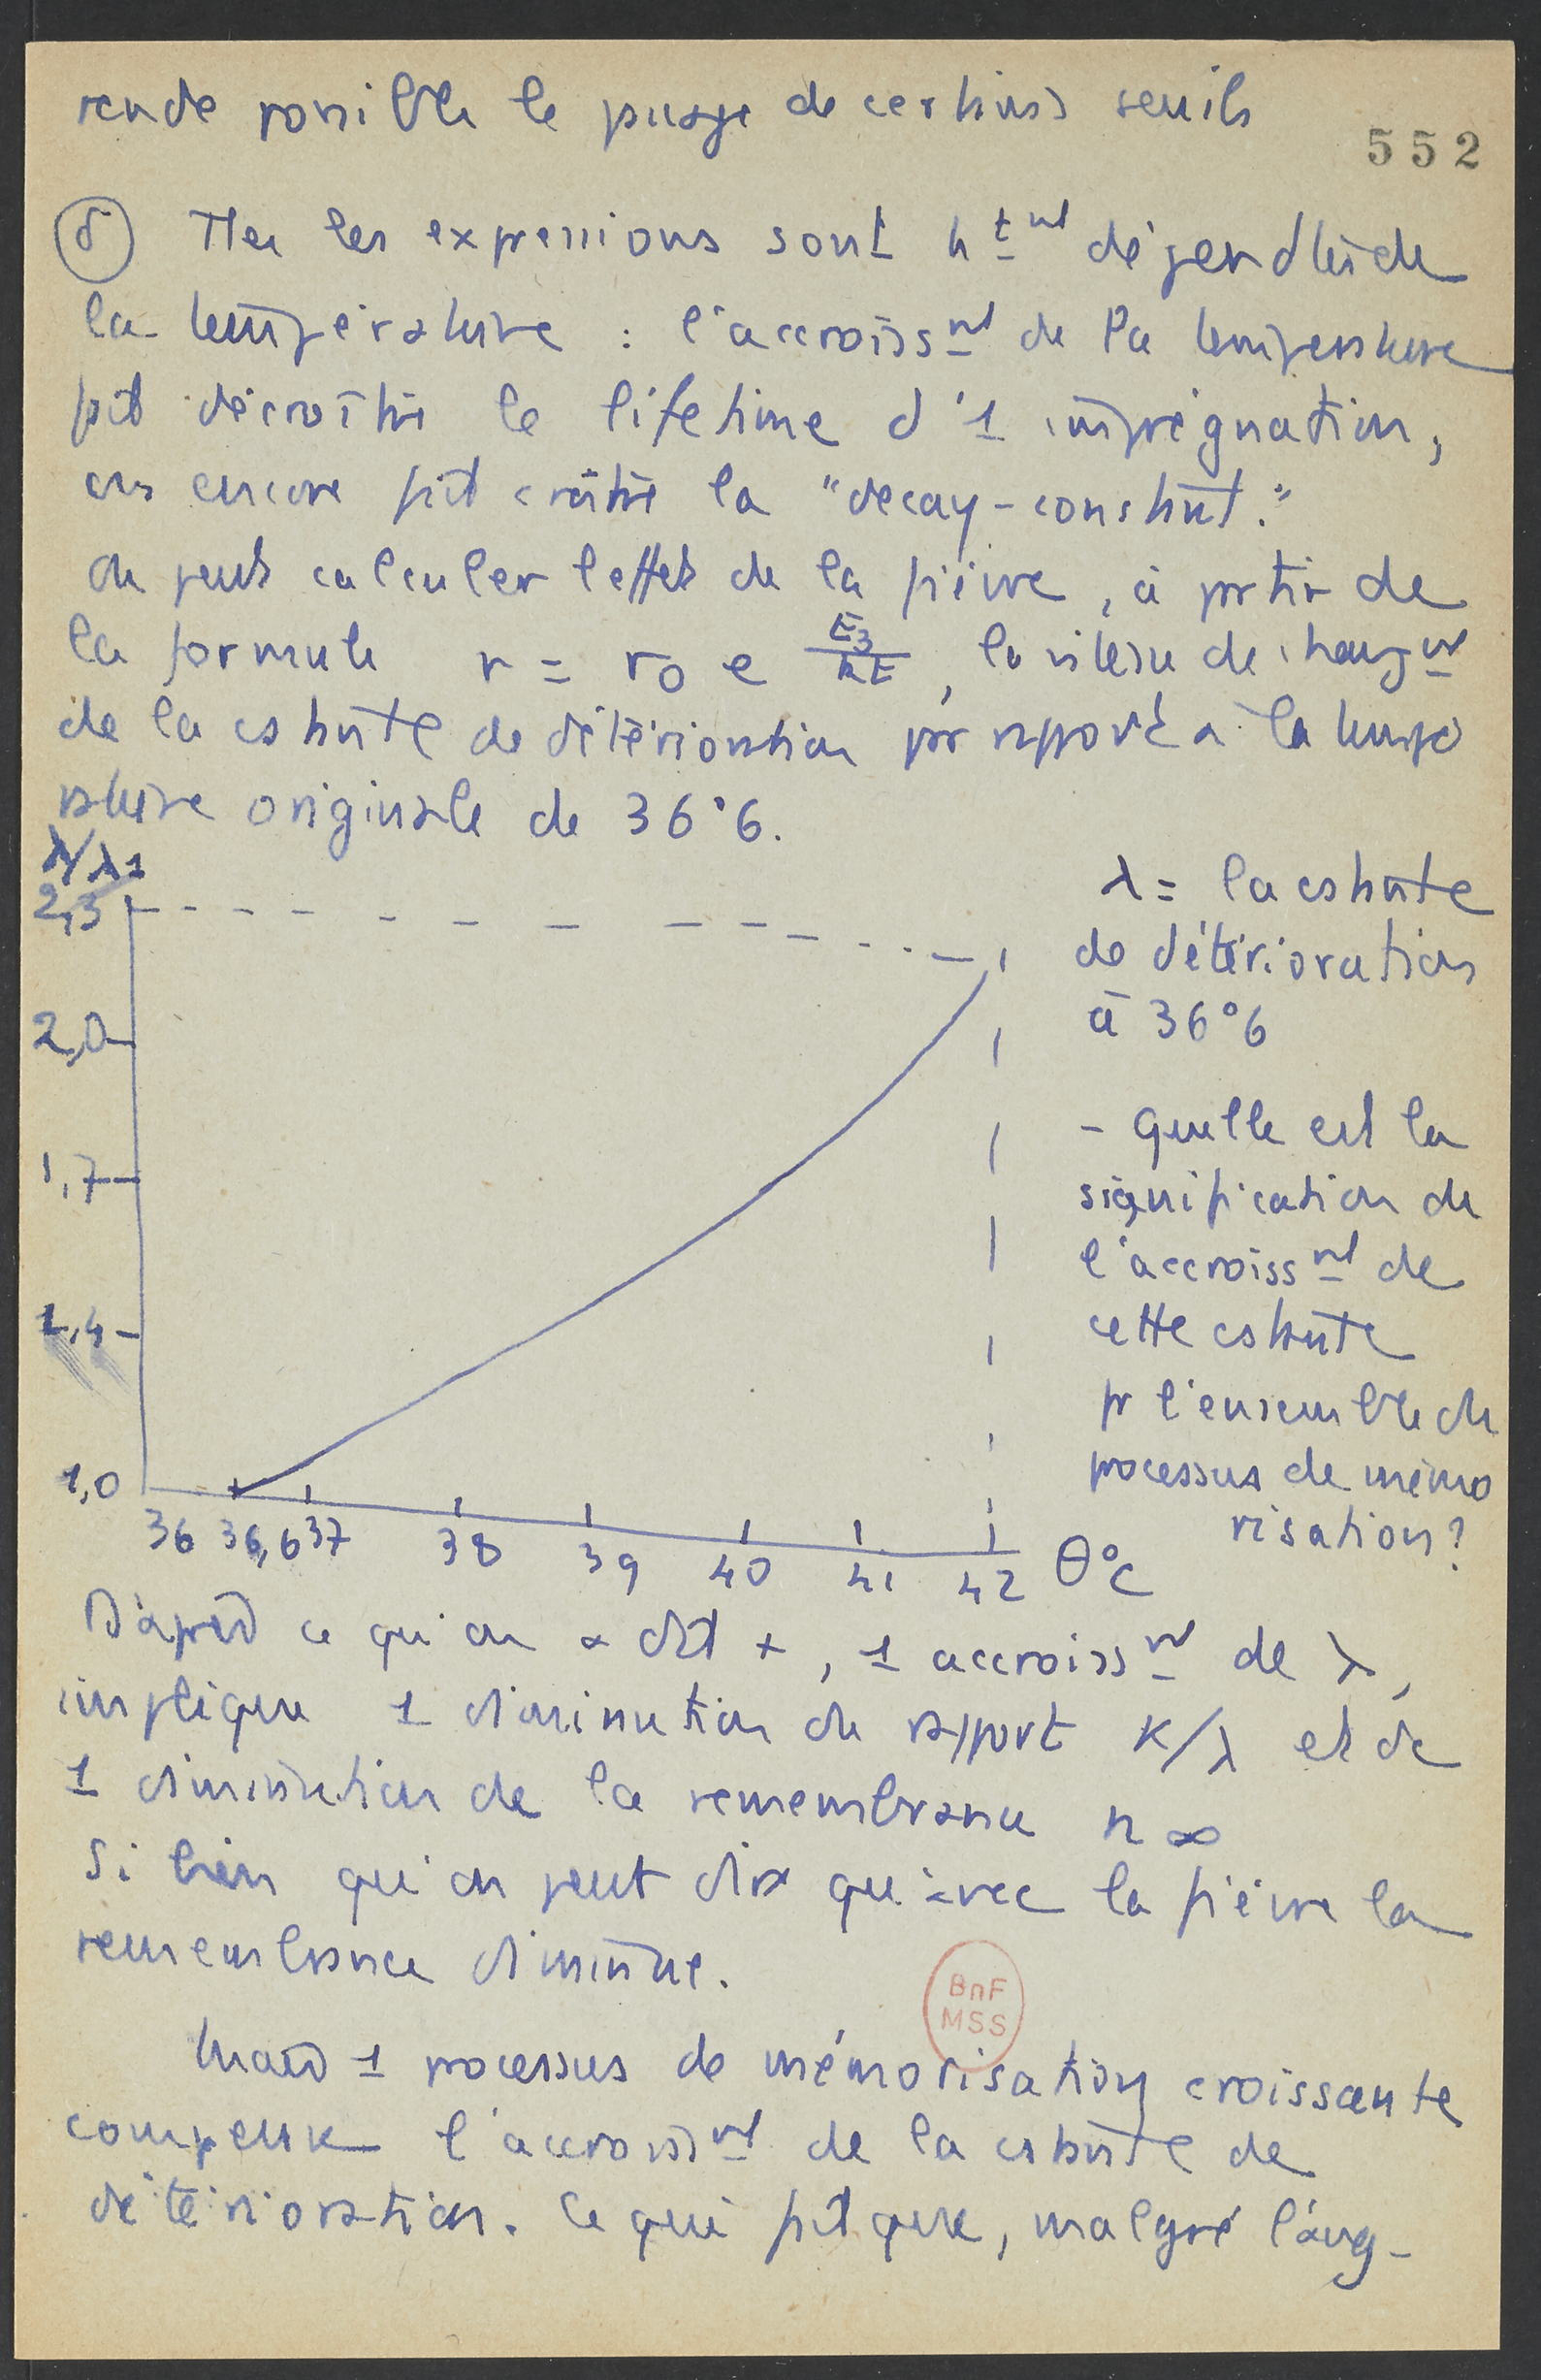 rende possible le passge de certains seuils
552
δ Ttes les expressions sont htmt dépendtes de
la température : l'accroissmt de la température
fait décroître le lifetime d'1 imprégnation,
ou encore fait croître la "decay-constant."
On peut calculer l'effet de la fièvre, à partir de
la formule r = r0 e E3/kt, la vitesse de changmt
de la cstante de détérioration par rapport à la tempé
rature originale de 36°6.
λ/λ1
2,3
2,0
1,7
1,4
1,0
36 36,6 37 38 39 40 41 42 θ°C
λ = la cstante
de détérioration
à 36°6
- Quelle est la
signification de
l'accroissmt de
cette cstante
pr l'ensemble du
processus de mémo
risation?
D'après ce qu'on a dit +, 1 accroissmt de λ,
implique 1 diminution du rapport K/λ et de
1 diminution de la remembrance n ∞
Si bien qu'on peut dire qu'avec la fièvre la
remembrance diminue.
BnF
MSS
Mais 1 processus de mémorisation croissante
compense l'accroissmt de la cstante de
détérioration. Ce qui fait que, malgré l'aug-